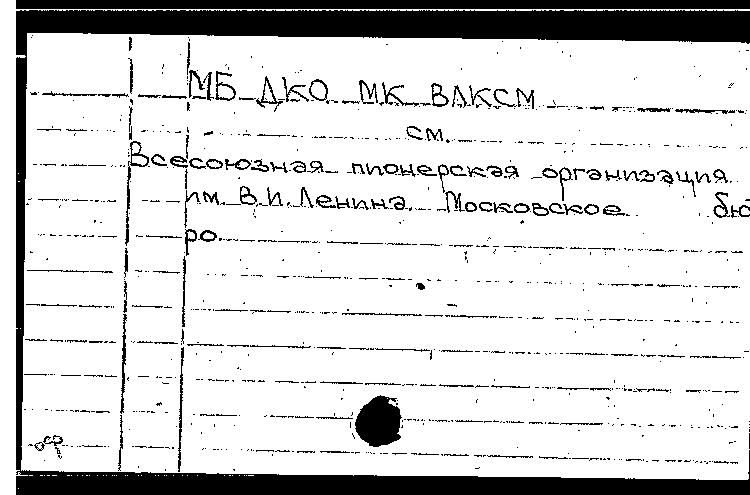 МБ ДКО МК ВЛКСМ
см.
Всесоюзная пионерская организация
им. В.И. Ленина. Московское бю
ро.